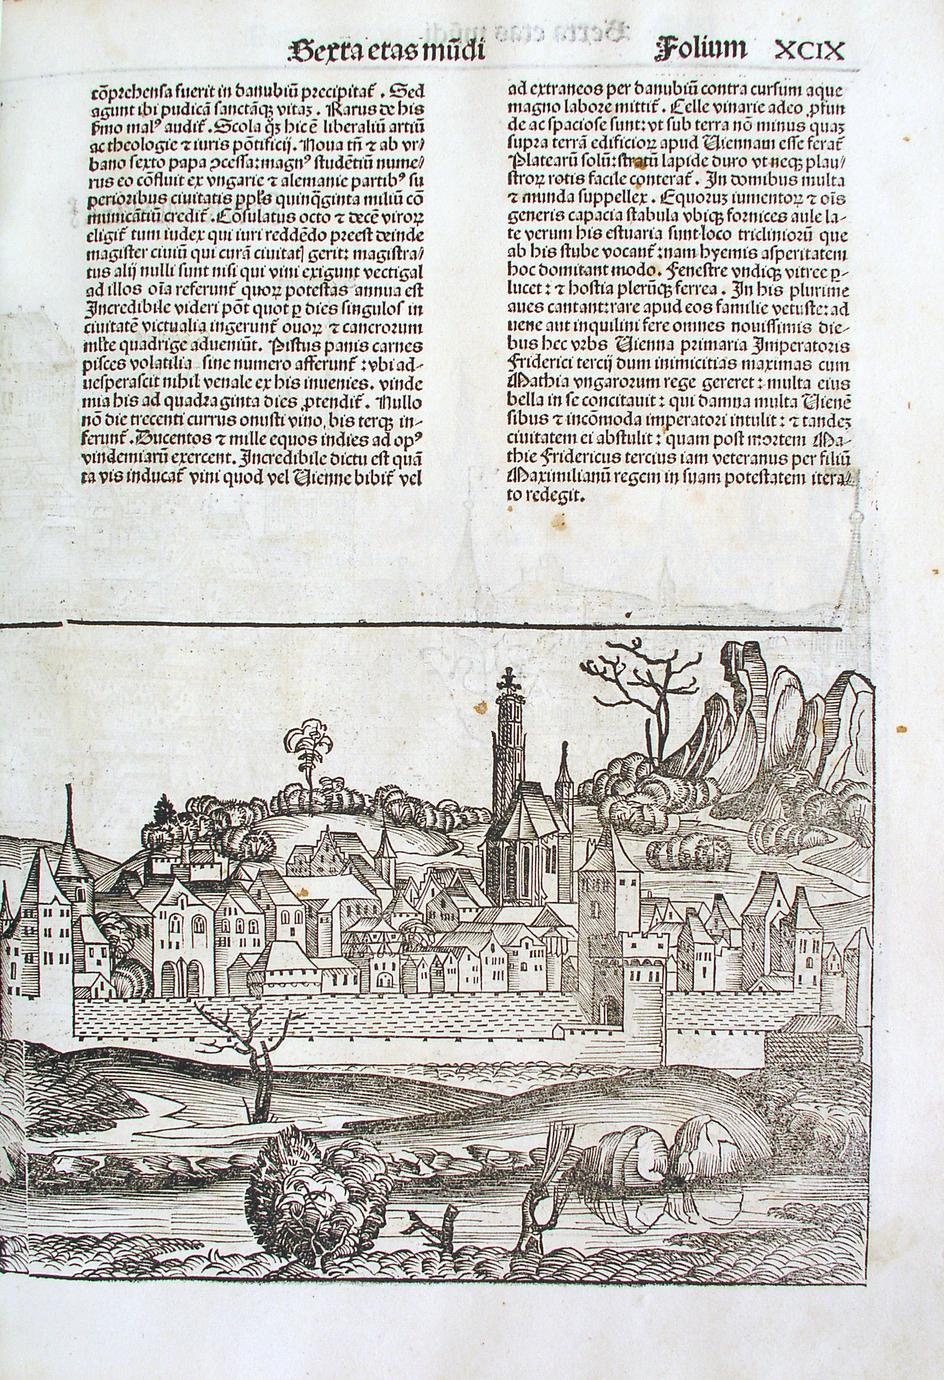 Sexta etas mūdi
Folium XCIX
cōprehensa fuerit in danubiū precipitat᷒. Sed
agunt ibi pudicā sanctāqꝫ vitaꝫ. Rarus de his
ſmo malꝰ audit᷒. Scola qꝫ hic ē liberaliū artiū
ac theologie ⁊ iuris pōtificij. Noua tn̄ ⁊ ab vr/
bano sexto papa ꝯcessa: magnꝰ studētiū nume/
rus eo cōfluit ex vngarie ⁊ alemanie partibꝰ su
perioribus ciuitatis ꝓpl̄s quinqꝫginta miliū cō
municātiū credit᷒. Cōsulatus octo ⁊ decē virorꝝ
eligit᷒ tum iudex qui iuri reddēdo preest deinde
magister ciuiū qui curā ciuitat] gerit: magistra/
tus alij nulli sunt nisi qui vini exigunt vectigal
ad illos oīa referunt᷒ quorꝝ potestas annua est
Incredibile videri pōt quot ꝑ dies singulos in
ciuitatē victualia ingerunt᷒ ouorꝝ ⁊ cancrorum
ml̄te quadrige adueniūt. Pistus panis carnes
pisces volatilia sine numero afferunt᷒: vbi ad-
uesperascit nihil venale ex his inuenies. vinde
mia his ad quadraginta dies ꝓtendit᷒. Nullo
nō die trecenti currus onusti vino, bis terqꝫ in-
ferunt᷒. Ducentos ⁊ mille equos indies ad opꝰ
vindemiarū exercent. Incredibile dictu est quā
ta vis inducat᷒ vini quod vel Uienne bibit᷒ vel
ad extraneos per danubiū contra cursum aque
magno labore mittit᷒. Celle vinarie adeo ꝓfun
de ac spaciose sunt: vt sub terra nō minus quaꝫ
supra terrā edificiorꝝ apud Uiennam esse ferat᷒
Platearū solū: stratū lapide duro vt neqꝫ plau/
strorꝝ rotis facile conterat᷒. In domibus multa
⁊ munda suppellex. Equoruꝫ iumentorꝝ ⁊ oīs
generis capacia stabula vbiqꝫ fornices aule la-
te verum his estuaria sunt loco tricliniorū que
ab his stube vocant᷒: nam hyemis asperitatem
hoc domitant modo. Fenestre vndiqꝫ vitree ꝑ-
lucet: ⁊ hostia plerūqꝫ ferrea. In his plurime
aues cantant: rare apud eos familie vetuste: ad
uene aut inquilini fere omnes nouissimis die-
bus hec vrbs Uienna primaria Imperatoris
Friderici tercij dum inimicitias maximas cum
Mathia vngarorum rege gereret: multa eius
bella in se concitauit: qui damna multa Uienē
sibus ⁊ incōmoda imperatori intulit: ⁊ tandeꝫ
ciuitatem ei abstulit: quam post mortem Ma-
thie Fridericus tercius iam veteranus per filiū
Maximilianū regem in suam potestatem itera/
to redegit.